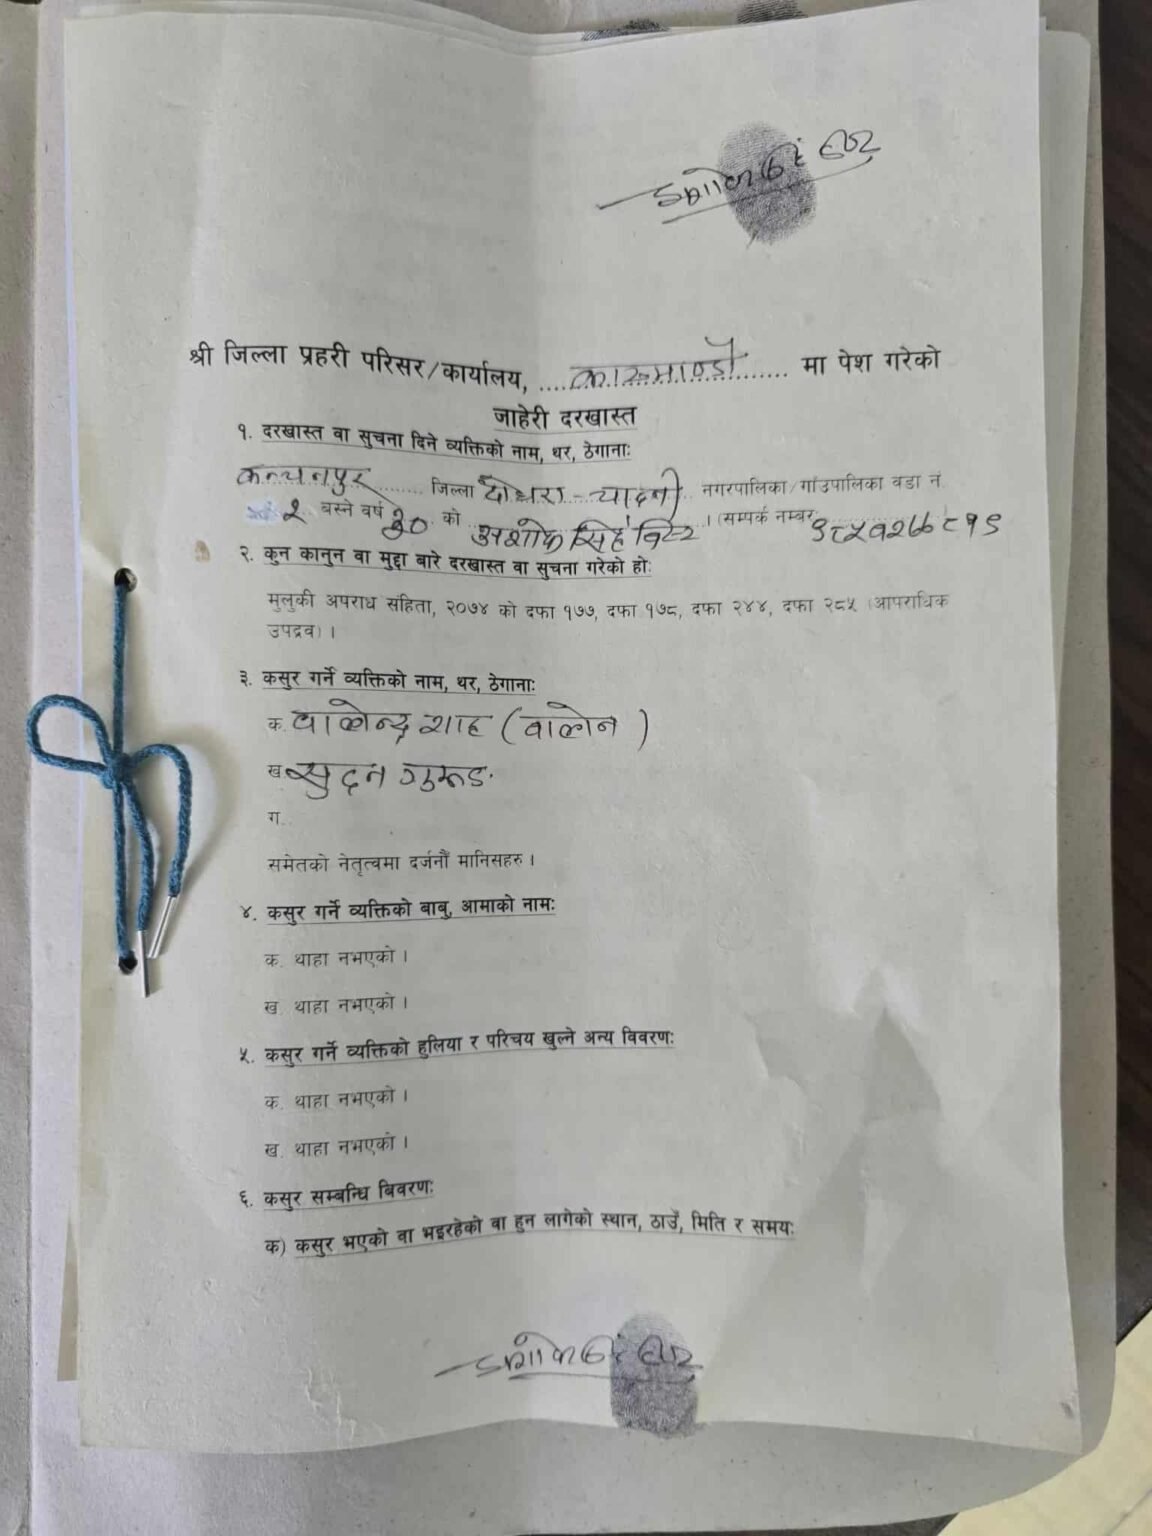 अशोक सिं बिष्ट
श्री जिल्ला प्रहरी परिसर/कार्यालय, ....काठमाण्डौ...... मा पेश गरेको
जाहेरी दरखास्त
१. दरखास्त वा सुचना दिने व्यक्तिको नाम, थर, ठेगानाः
कन्चनपुर ........ जिल्ला दोधरा - चादनी नगरपालिका/गाँउपालिका वडा नं.
२ बस्ने वर्ष ३० को अशोक सिहं बिष्ट । (सम्पर्क नम्बर ९८५१२७७८१९
२. कुन कानुन वा मुद्दा बारे दरखास्त वा सुचना गरेको होः
मुलुकी अपराध संहिता, २०७४ को दफा १७७, दफा १७८, दफा २४४, दफा २८५ (आपराधिक
उपद्रव) ।
३. कसुर गर्ने व्यक्तिको नाम, थर, ठेगानाः
क. वालेन्द्र शाह (वालेन )
ख. सुदन गुरुङ
ग.
समेतको नेतृत्वमा दर्जनौं मानिसहरु ।
४. कसुर गर्ने व्यक्तिको बाबु, आमाको नामः
क. थाहा नभएको ।
ख. थाहा नभएको ।
५. कसुर गर्ने व्यक्तिको हुलिया र परिचय खुल्ने अन्य विवरणः
क. थाहा नभएको ।
ख. थाहा नभएको ।
६. कसुर सम्बन्धि बिवरणः
क) कसुर भएको वा भइरहेको वा हुन लागेको स्थान, ठाउँ, मिति र समयः
अशोक सिं बिष्ट